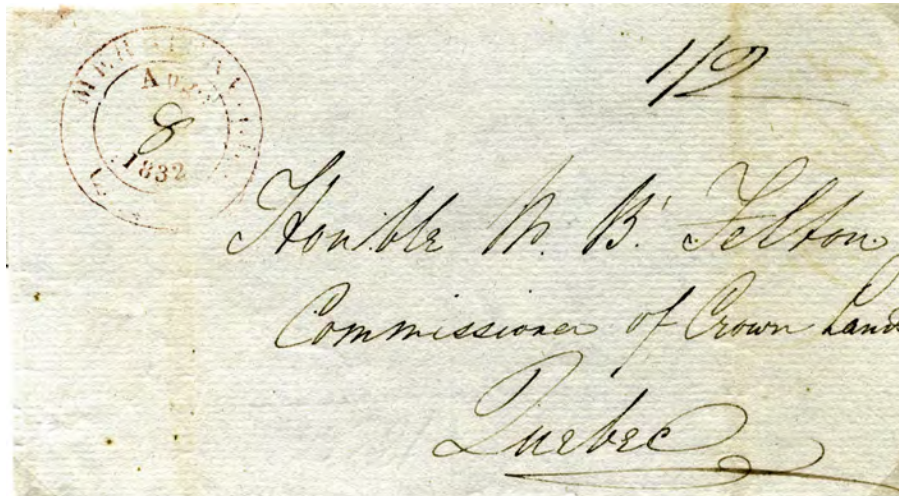 Aug.
8
1832
1/2
Honble W. B. Felton
Commissioner of Crown Land
Quebec